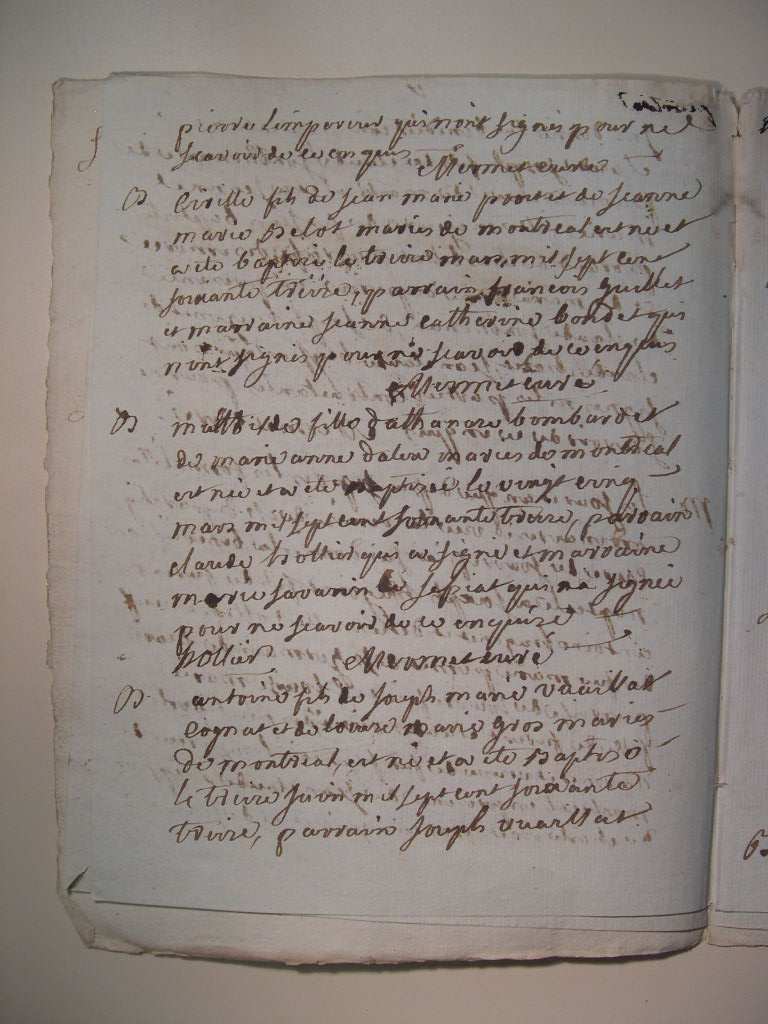 pierre Lempereur qui n'ont signés pour ne
scavoir de ce enquis Mermet curé
B Cirille fils de jean marie provet et de jeanne
marie Belot mariés de montreal est né et
a été baptisé le treize mars mil sept cent
soixante treize, parrain francois guillet
et marraine jeanne catherine bondet qui
n'ont signés pour ne scavoir de ce enquis
Mermet curé
B fille d'athanaze bombard et
de marie anne mariés de montreal
est née et a été baptisée le vingt cinq
mars mil sept cent soixante treize, parrain
claude hollier qui a signé et marraine
marie savarin de qui na signée
pour ne scavoir de ce enquise
hollier Mermet curé
B antoine fils de joseph marie vuaillat
cognat et de loüise marie gros mariés
de montreal, est né et a été Baptisé
le treize juin mil sept cent soixante
treize, parrain joseph vuaillat